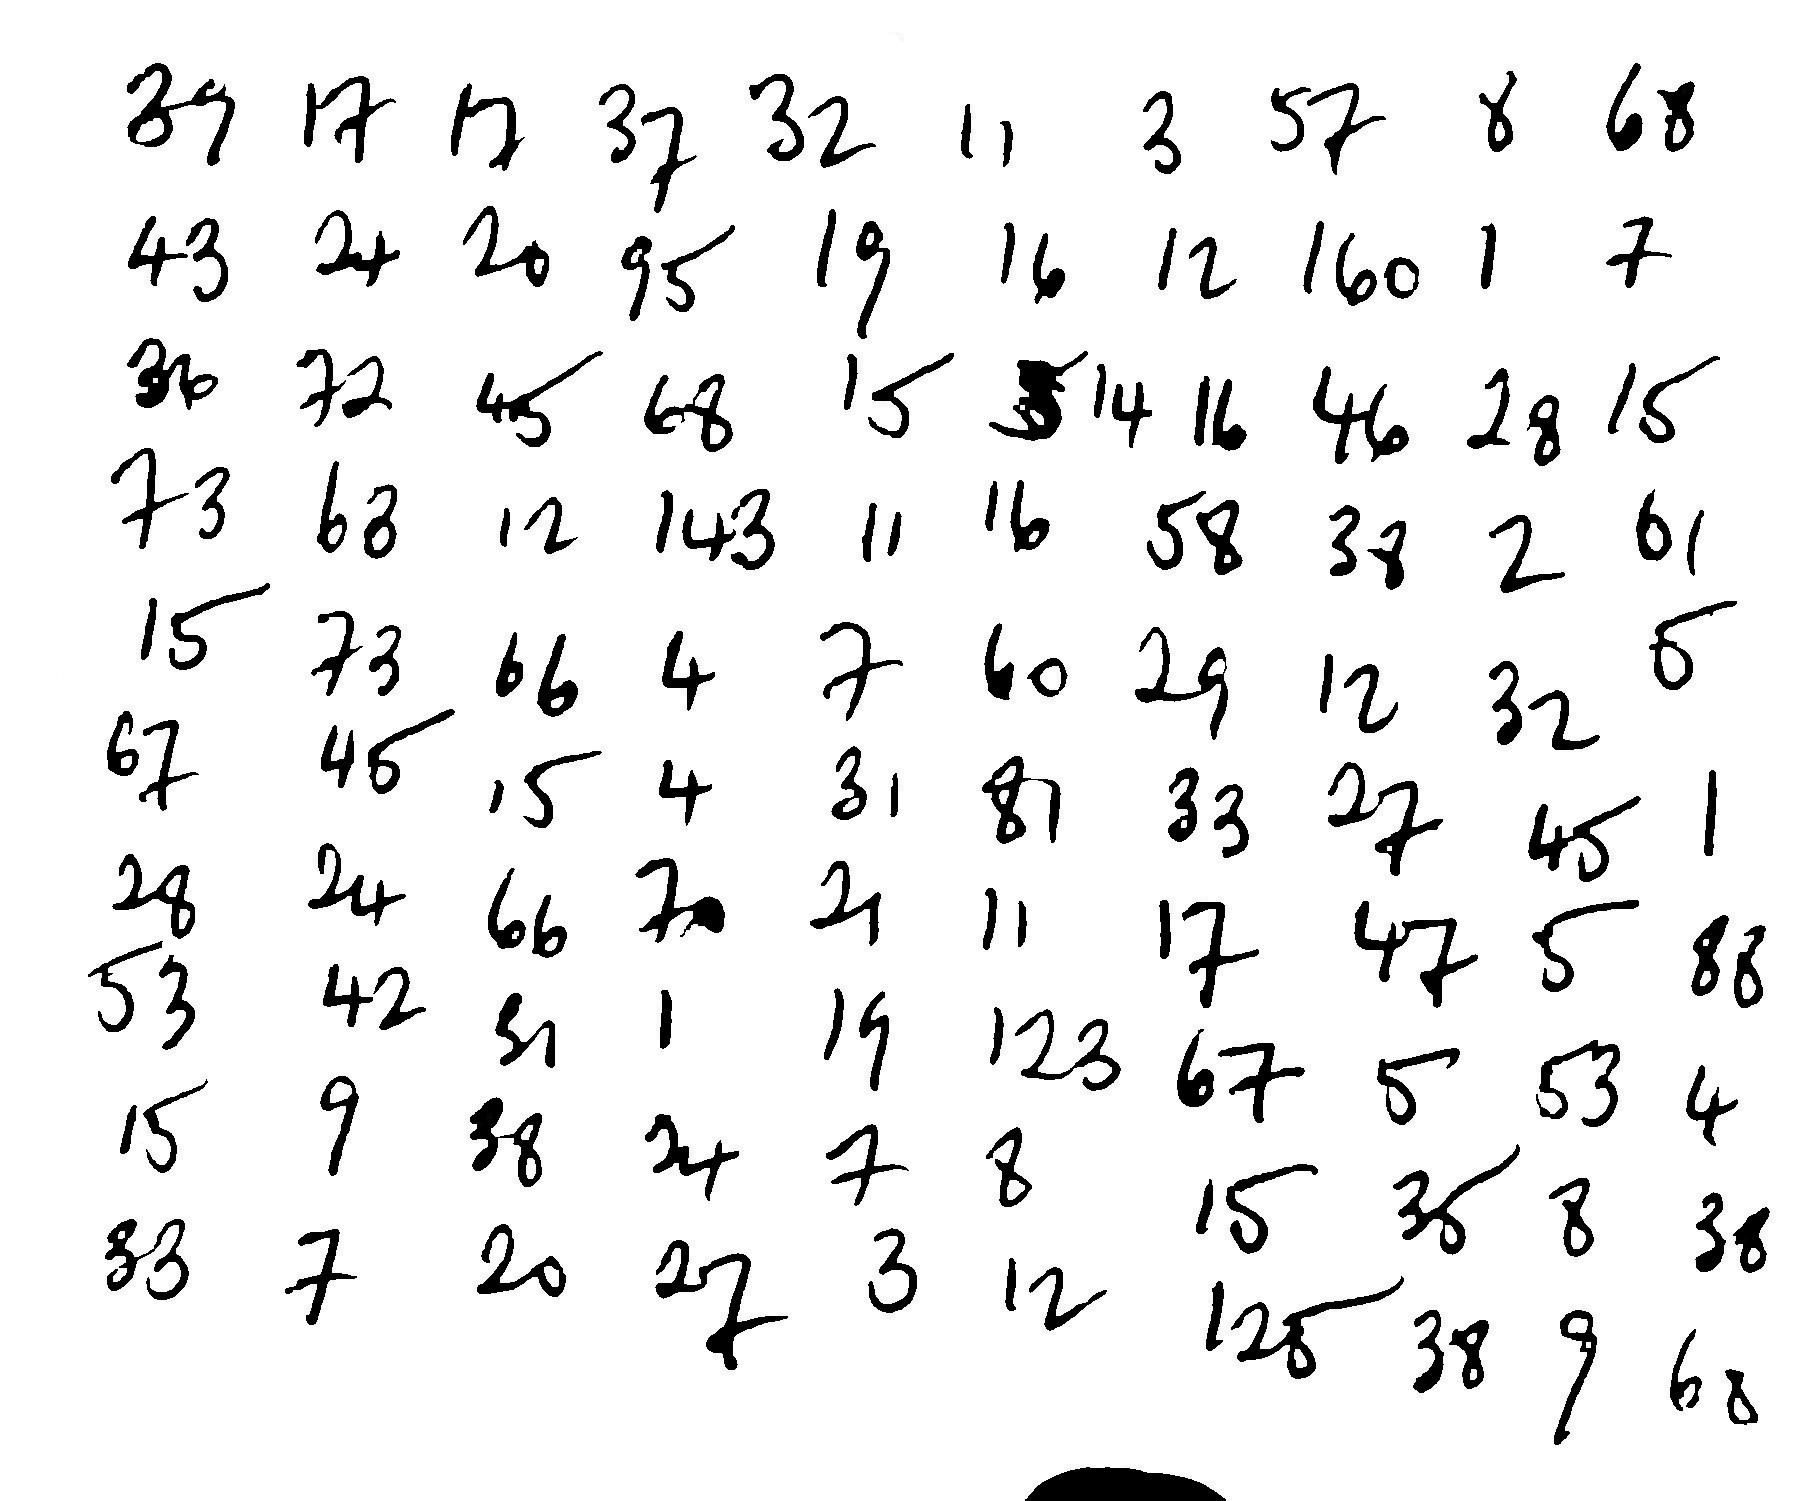 39 17 17 37 32 11 3 57 8 68
43 24 20 95 19 16 12 160 1 7
36 72 45 68 15 14 16 46 28 15
73 63 12 143 11 16 58 38 2 61
15 73 66 4 7 60 29 12 32 5
67 45 15 4 31 81 33 27 45 1
28 24 66 70 21 11 17 47 5 88
53 42 31 1 19 123 67 5 53 4
15 9 38 24 7 8 15 35 8 38
33 7 20 27 3 12 125 38 9 68